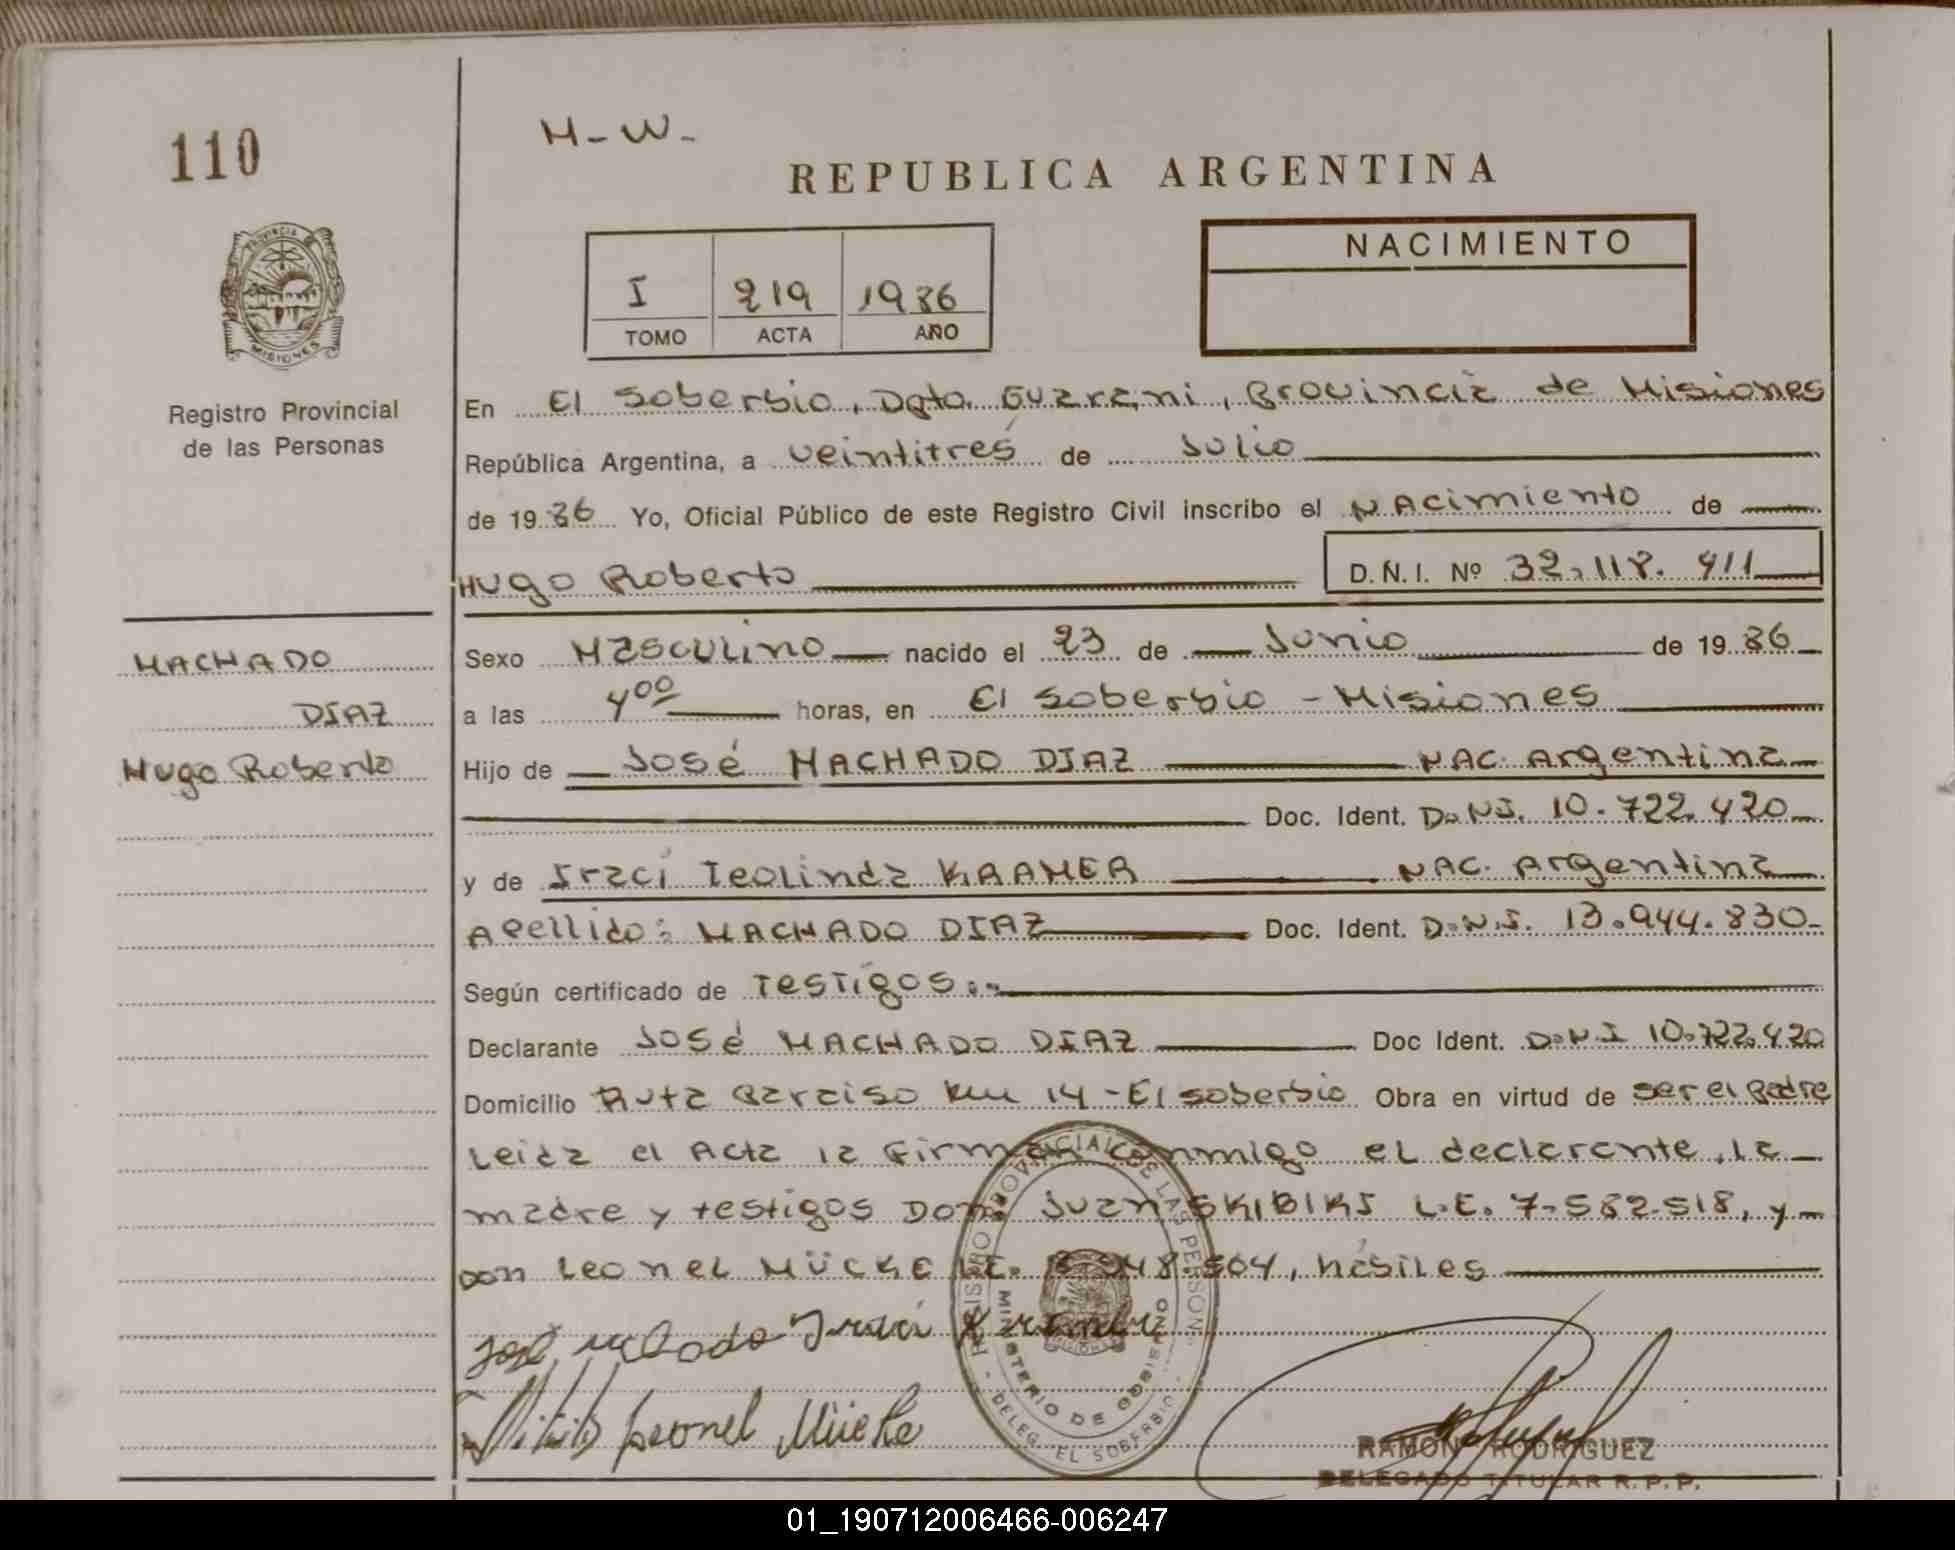 110
H-W-
REPUBLICA ARGENTINA
I 219 1986
TOMO ACTA AÑO
NACIMIENTO
PROVINCIA DE
MISIONES
Registro Provincial
de las Personas
En El Soberbio, Dpto. Guarani, Provincia de Misiones
República Argentina, a veintitres de Julio
de 19 86 Yo, Oficial Público de este Registro Civil inscribo el NAcimiento de
Hugo Roberto D.N.I. Nº 32.118.411
MACHADO
DIAZ
Hugo Roberto
Sexo Masculino nacido el 23 de Junio de 19 86
a las 4 00 horas, en El Soberbio - Misiones
Hijo de José MACHADO DIAZ NAC. Argentina
Doc. Ident. D.N.I. 10.722.420
y de Iraci Teolinda KRAMER NAC. Argentina
Apellido: MACHADO DIAZ Doc. Ident. D.N.I. 13.944.830-
Según certificado de Testigos.-
Declarante José MACHADO DIAZ Doc Ident. D.N.I 10.722.420
Domicilio Ruta Paraiso Km 14 - El Soberbio Obra en virtud de ser el padre
Leida el Acta la Firman conmigo el declarante, la
madre y testigos Don: Juan SKIBIKI L.E. 7.582.518, y
Don Leonel MÜCKE L.E. 048.504, hábiles
José Machado Iraci Kramer
Leonel Mücke
REGISTRO PROVINCIAL DE LAS PERSONAS
MINISTERIO DE GOBIERNO
DELEG. EL SOBERBIO
RAMON RODRIGUEZ
DELEGADO TITULAR R.P.P.
01_190712006466-006247